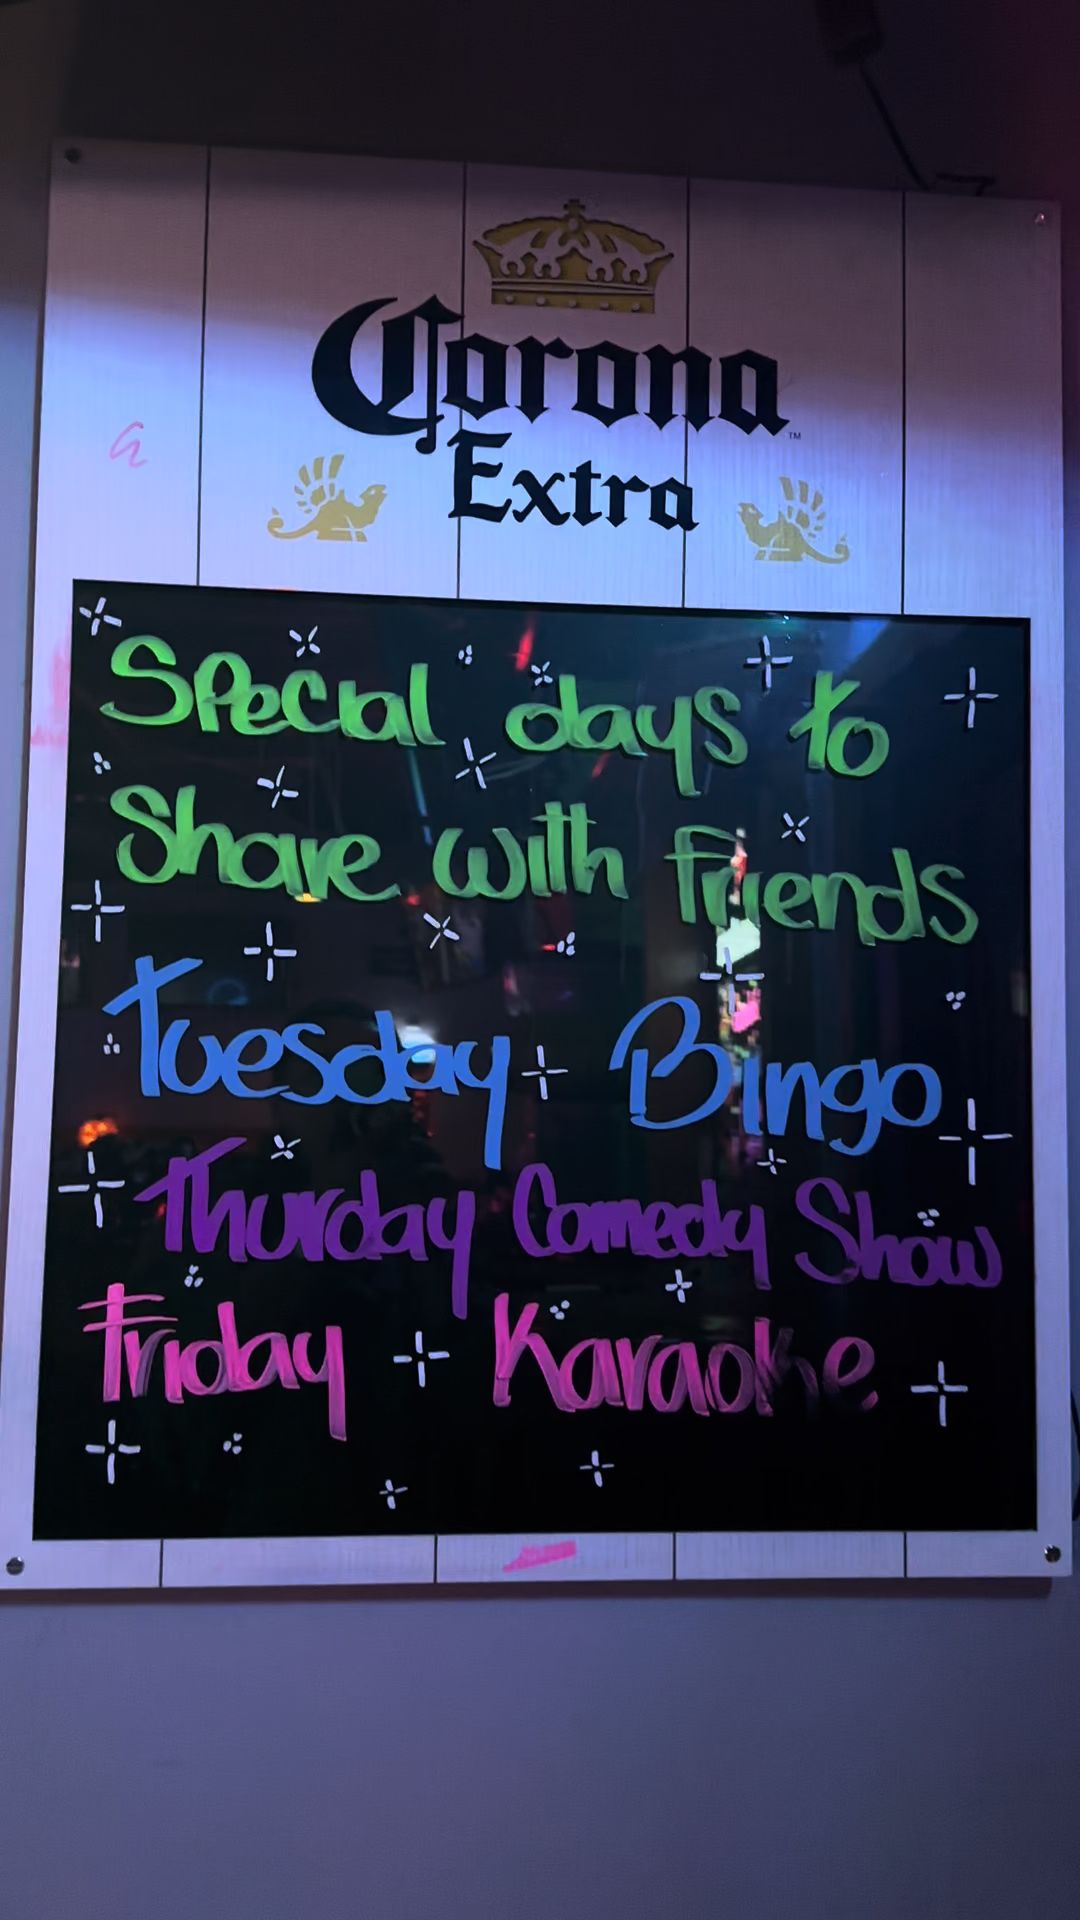 Corona
Extra
Special days to
Share with friends
Tuesday Bingo
Thurday Comedy Show
Friday Karaoke